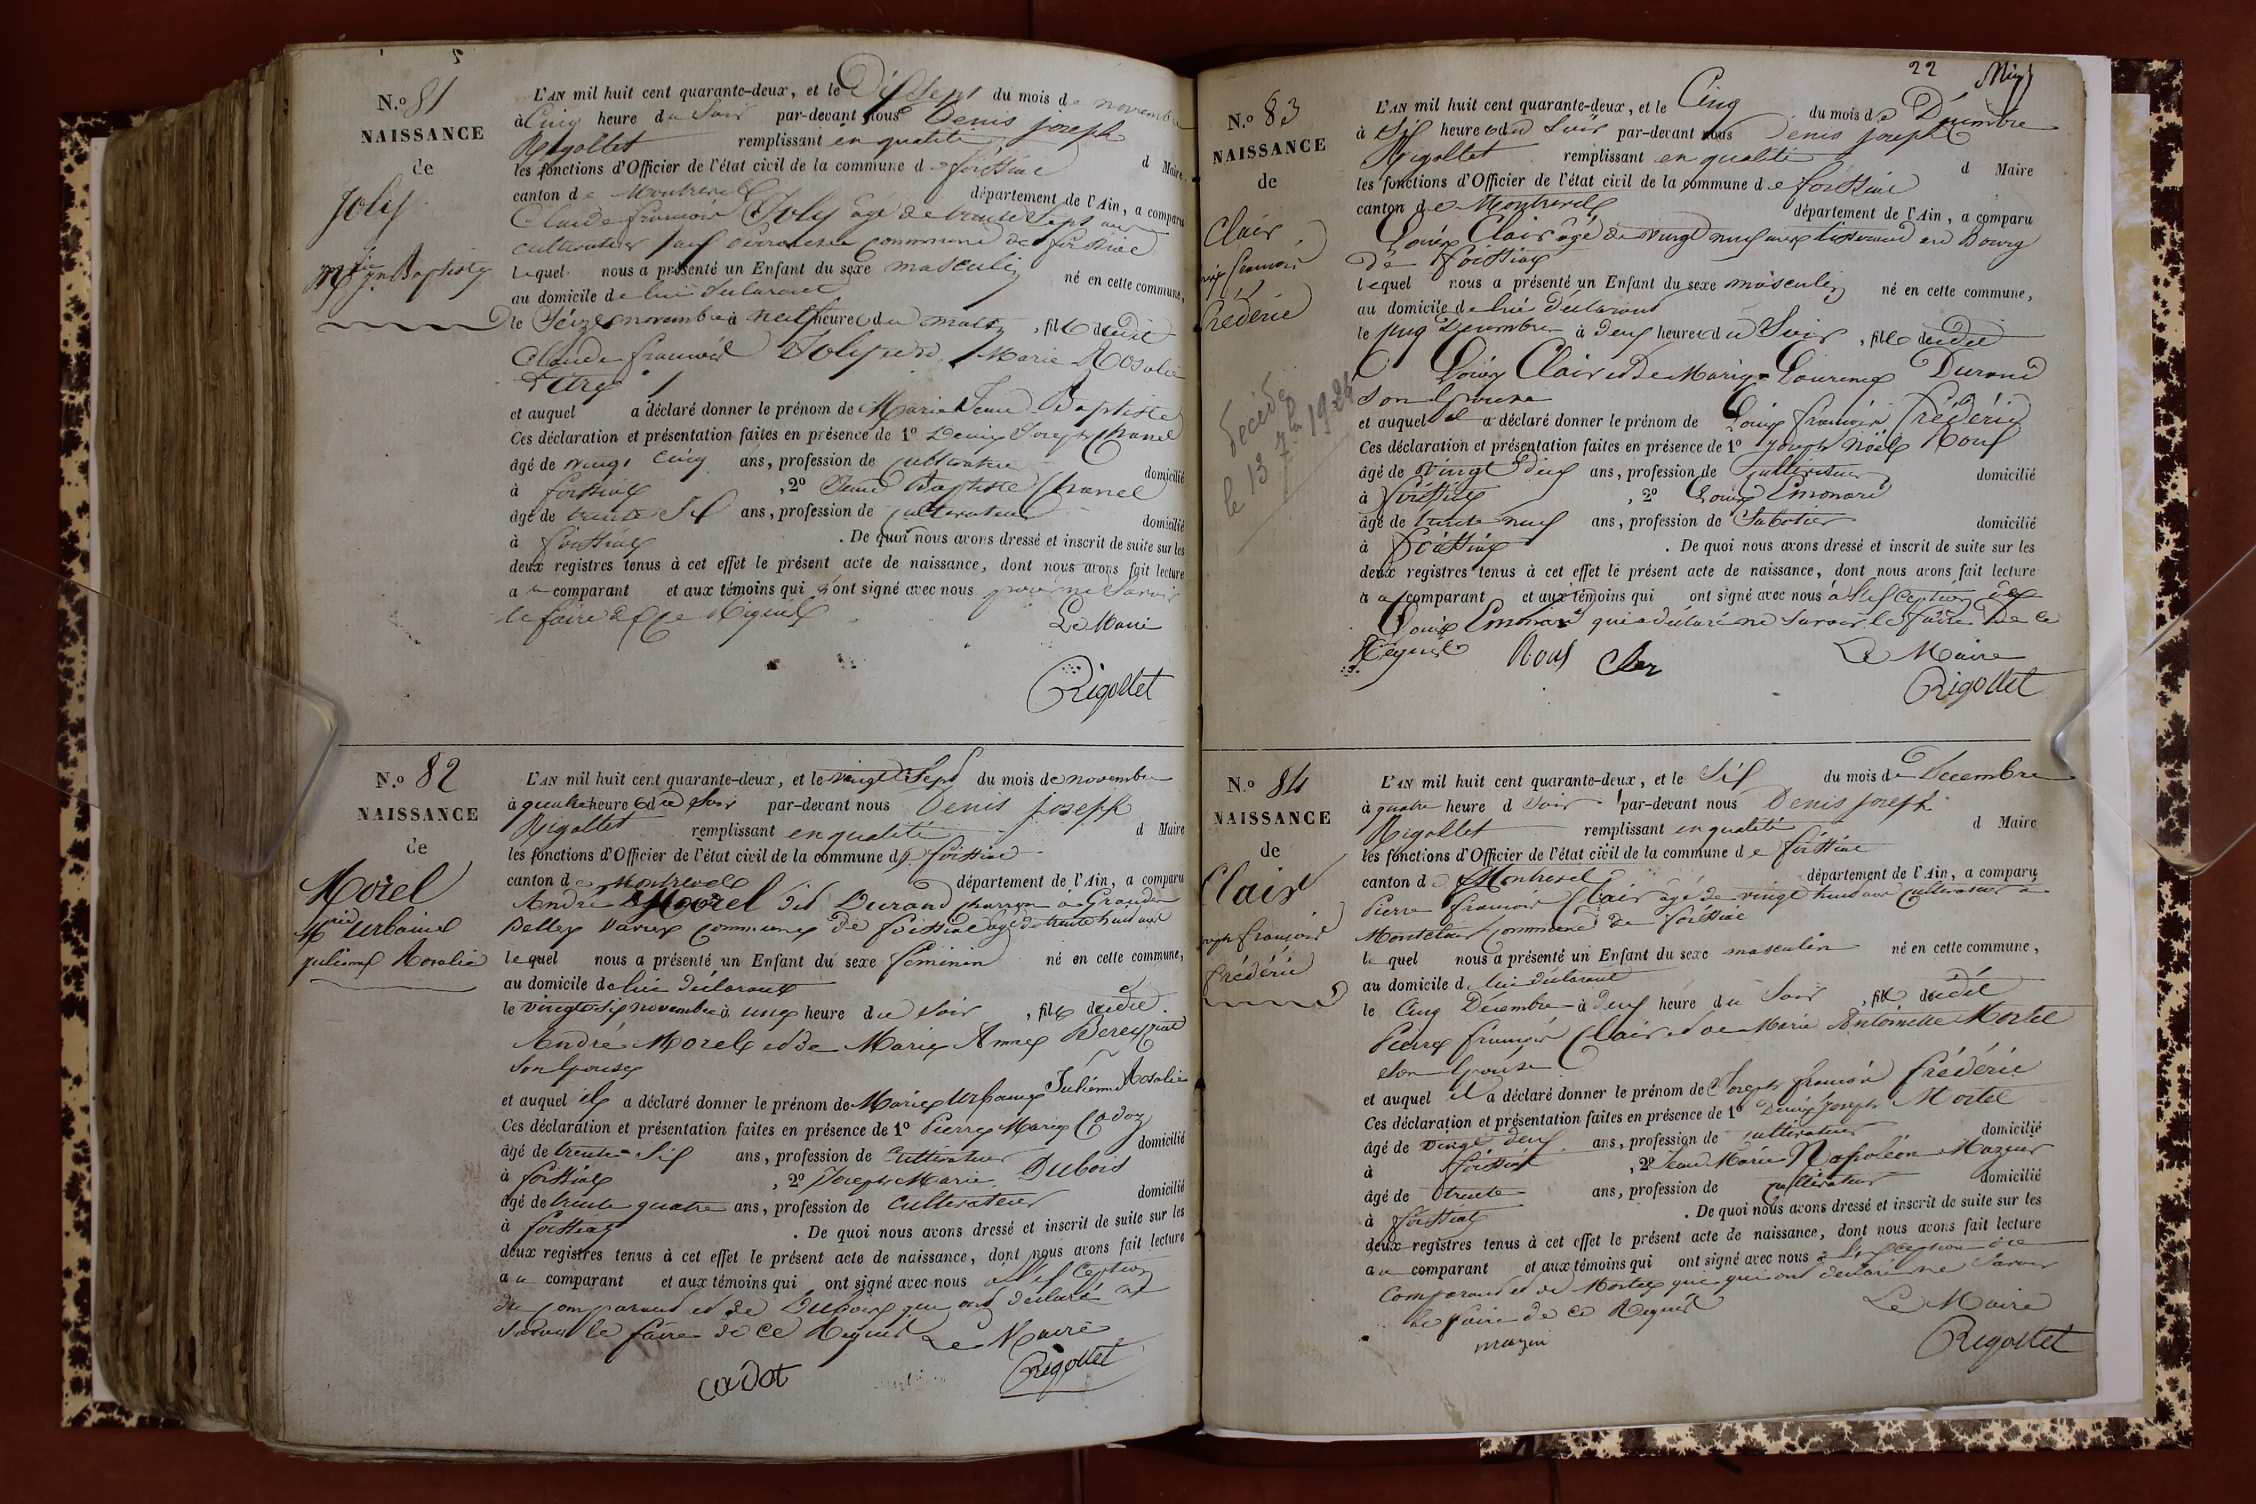 N.o 81
NAISSANCE
de
Joly
Mie Jn Baptiste
L'AN mil huit cent quarante-deux, et le Dix Sept du mois de novembre
à Cinq heure du Soir par-devant nous Denis joseph
Rigollet remplissant en qualité d Maire
les fonctions d'Officier de l'état civil de la commune de foissiat
canton de Montrevel département de l'Ain, a comparu
Claude françois Joly âgé de trente Sept ans
cultivateur commune de foissiat
lequel nous a présenté un Enfant du sexe masculin né en cette commune,
au domicile de lui déclarant
le Seize novembre à neuf heure du matin, fils dudit
Claude françois Joly et de Marie Rosalie
et auquel a déclaré donner le prénom de Marie Jean Baptiste
Ces déclaration et présentation faites en présence de 1o Denis Joseph Chanel
âgé de vingt cinq ans, profession de cultivateur domicilié
à foissiat, 2o Jean Baptiste Chanel
âgé de trente Six ans, profession de cultivateur domicilié
à foissiat. De quoi nous avons dressé et inscrit de suite sur les
deux registres tenus à cet effet le présent acte de naissance, dont nous avons fait lecture
au comparant et aux témoins qui n'ont signé avec nous pour ne Savoir
le faire de ce Requis
Le Maire
Rigollet
N.o 82
NAISSANCE
de
Morel
Mie Urbaine
julienne Rosalie
L'AN mil huit cent quarante-deux, et le vingt Sept du mois de novembre
à quatre heure du Soir par-devant nous Denis joseph
Rigollet remplissant en qualité d Maire
les fonctions d'Officier de l'état civil de la commune de foissiat
canton de Montrevel département de l'Ain, a comparu
André Morel dit Durand charron à Grandes
commune de foissiat âgé de trente huit ans
lequel nous a présenté un Enfant du sexe féminin né en cette commune,
au domicile de lui déclarant
le vingt Six novembre à une heure du Soir, fille dudit
André Morel et de Marie Anne
Son Epouse
et auquel il a déclaré donner le prénom de Marie Urbaine Julienne Rosalie
Ces déclaration et présentation faites en présence de 1o Pierre Marie Cadoz
âgé de trente Six ans, profession de cultivateur domicilié
à foissiat, 2o Joseph Marie Dubois
âgé de trente quatre ans, profession de cultivateur domicilié
à foissiat. De quoi nous avons dressé et inscrit de suite sur les
deux registres tenus à cet effet le présent acte de naissance, dont nous avons fait lecture
au comparant et aux témoins qui ont signé avec nous à l'Exception
du comparant et de Dubois qui ont déclaré ne
Savoir le faire de ce Requis Le Maire
cadot Rigollet
22
N.o 83
NAISSANCE
de
Clair
françois
frédéric
décédé
le 13 7bre
L'AN mil huit cent quarante-deux, et le Cinq du mois de Décembre
à Six heure du Soir par-devant nous Denis joseph
Rigollet remplissant en qualité d Maire
les fonctions d'Officier de l'état civil de la commune de foissiat
canton de Montrevel département de l'Ain, a comparu
Louis Clair âgé de vingt neuf ans tisserand au Bourg
de foissiat
lequel nous a présenté un Enfant du sexe masculin né en cette commune,
au domicile de lui déclarant
le cinq Décembre à deux heure du Soir, fils dudit
Louis Clair et de Marie Laurence Durand
Son Epouse
et auquel il a déclaré donner le prénom de Louis françois frédéric
Ces déclaration et présentation faites en présence de 1o joseph Noël Roux
âgé de vingt deux ans, profession de cultivateur domicilié
à foissiat, 2o Louis Emonard
âgé de trente neuf ans, profession de Sabotier domicilié
à foissiat. De quoi nous avons dressé et inscrit de suite sur les
deux registres tenus à cet effet le présent acte de naissance, dont nous avons fait lecture
au comparant et aux témoins qui ont signé avec nous à l'Exception de
Louis Emonard qui a déclaré ne Savoir le faire de ce
Requis Roux Cler Le Maire
Rigollet
N.o 84
NAISSANCE
de
Clair
joseph françois
frédéric
L'AN mil huit cent quarante-deux, et le Six du mois de Décembre
à quatre heure d Soir par-devant nous Denis joseph
Rigollet remplissant en qualité d Maire
les fonctions d'Officier de l'état civil de la commune de foissiat
canton de Montrevel département de l'Ain, a comparu
Pierre françois Clair âgé de vingt huit ans cultivateur à
Montclair commune de foissiat
lequel nous a présenté un Enfant du sexe masculin né en cette commune,
au domicile d lui déclarant
le Cinq Décembre à deux heure du Soir, fils dudit
Pierre françois Clair et de Marie Antoinette Mortel
Son Epouse
et auquel il a déclaré donner le prénom de Joseph françois frédéric
Ces déclaration et présentation faites en présence de 1o Denis joseph Mortel
âgé de vingt deux ans, profession de cultivateur domicilié
à foissiat, 2o Jean Marie Napoléon Mazuir
âgé de trente ans, profession de cultivateur domicilié
à foissiat. De quoi nous avons dressé et inscrit de suite sur les
deux registres tenus à cet effet le présent acte de naissance, dont nous avons fait lecture
au comparant et aux témoins qui ont signé avec nous à l'Exception du
Comparant et de Mortel qui ont déclaré ne Savoir
le faire de ce Requis Le Maire
mazuir Rigollet